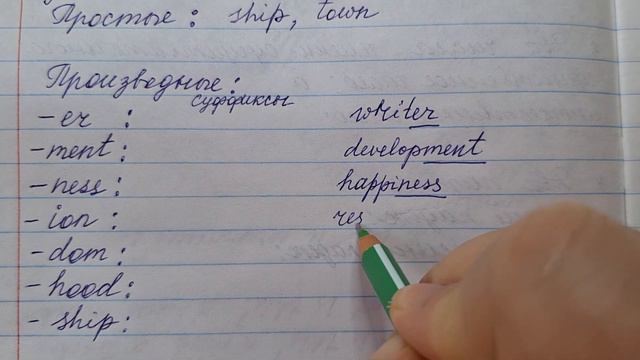 Простые : ship, town
Производные :
суффиксы
- er : writer
- ment : development
- ness : happiness
- ion : res
- dom :
- hood :
- ship :